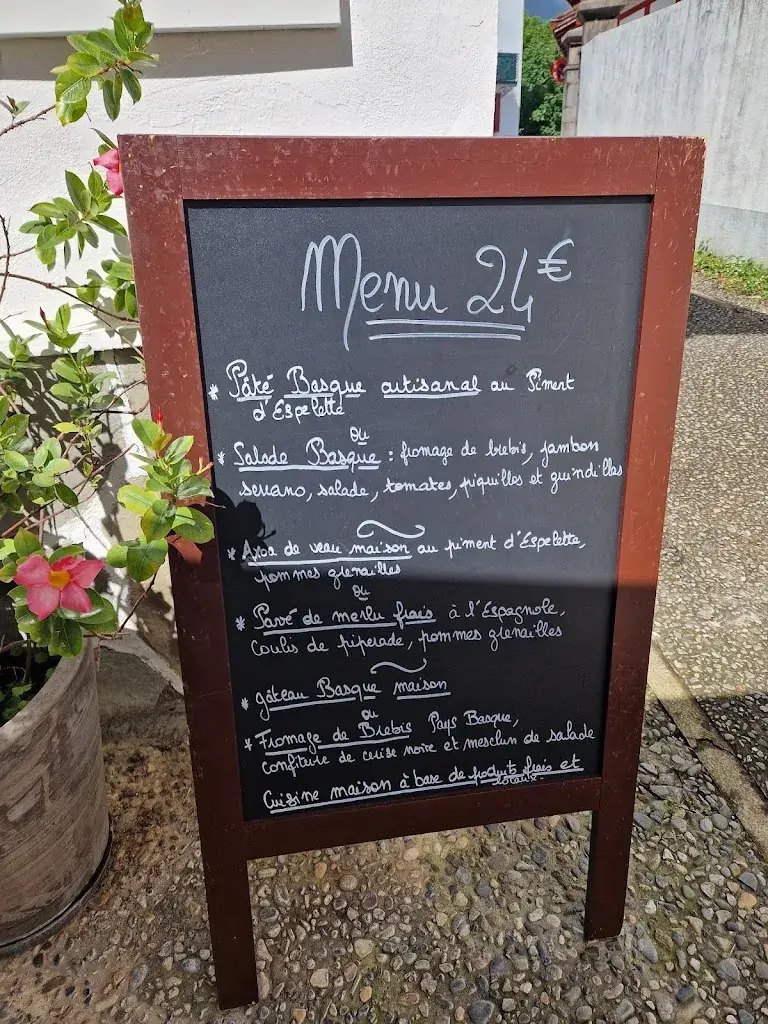 Menu 24€
* Pâté Basque artisanal au Piment
d'Espelette
ou
* Salade Basque : fromage de brebis, jambon
serrano, salade, tomates, piquilles et guindillas
* Axoa de veau maison au piment d'Espelette,
pommes grenailles
ou
* Pavé de merlu frais à l'Espagnole,
Coulis de piperade, pommes grenailles
* gâteau Basque maison
ou
* Fromage de Brebis Pays Basque,
confiture de cerise noire et mesclun de salade
Cuisine maison à base de produits frais et
locaux